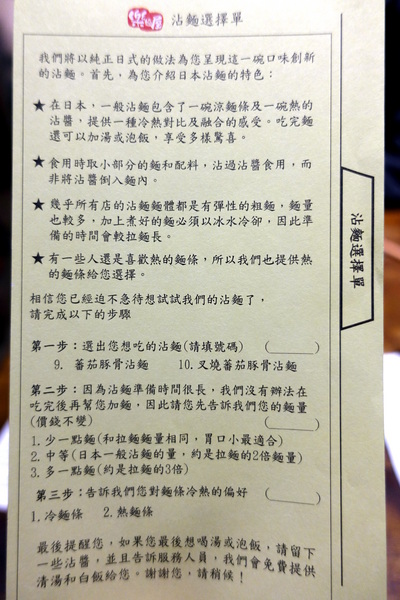 樂麵屋 沾麵選擇單
我們將以純正日式的做法為您呈現這一碗口味創新
的沾麵。首先，為您介紹日本沾麵的特色：
★在日本，一般沾麵包含了一碗涼麵條及一碗熱的
沾醬，提供一種冷熱對比及融合的感受。吃完麵
還可以加湯或泡飯，享受多樣驚喜。
★食用時取小部分的麵和配料，沾過沾醬食用，而
非將沾醬倒入麵內。
★幾乎所有店的沾麵麵體都是有彈性的粗麵，麵量
也較多，加上煮好的麵必須以冰水冷卻，因此準
備的時間會較拉麵長。
★有一些人還是喜歡熱的麵條，所以我們也提供熱
的麵條給您選擇。
相信您已經迫不急待想試試我們的沾麵了，
請完成以下的步驟
第一步：選出您想吃的沾麵(請填號碼) (　　　)
9. 蕃茄豚骨沾麵 10.叉燒蕃茄豚骨沾麵
第二步：因為沾麵準備時間很長，我們沒有辦法在
吃完後再幫您加麵，因此請您先告訴我們您的麵量
(價錢不變) (　　　)
1.少一點麵(和拉麵麵量相同，胃口小最適合)
2.中等(日本一般沾麵的量，約是拉麵的2倍麵量)
3.多一點麵(約是拉麵的3倍)
第三步：告訴我們您對麵條冷熱的偏好 (　　　)
1.冷麵條 2.熱麵條
最後提醒您，如果您最後想喝湯或泡飯，請留下
一些沾醬，並且告訴服務人員，我們會免費提供
清湯和白飯給您。謝謝您，請稍候！
沾麵選擇單